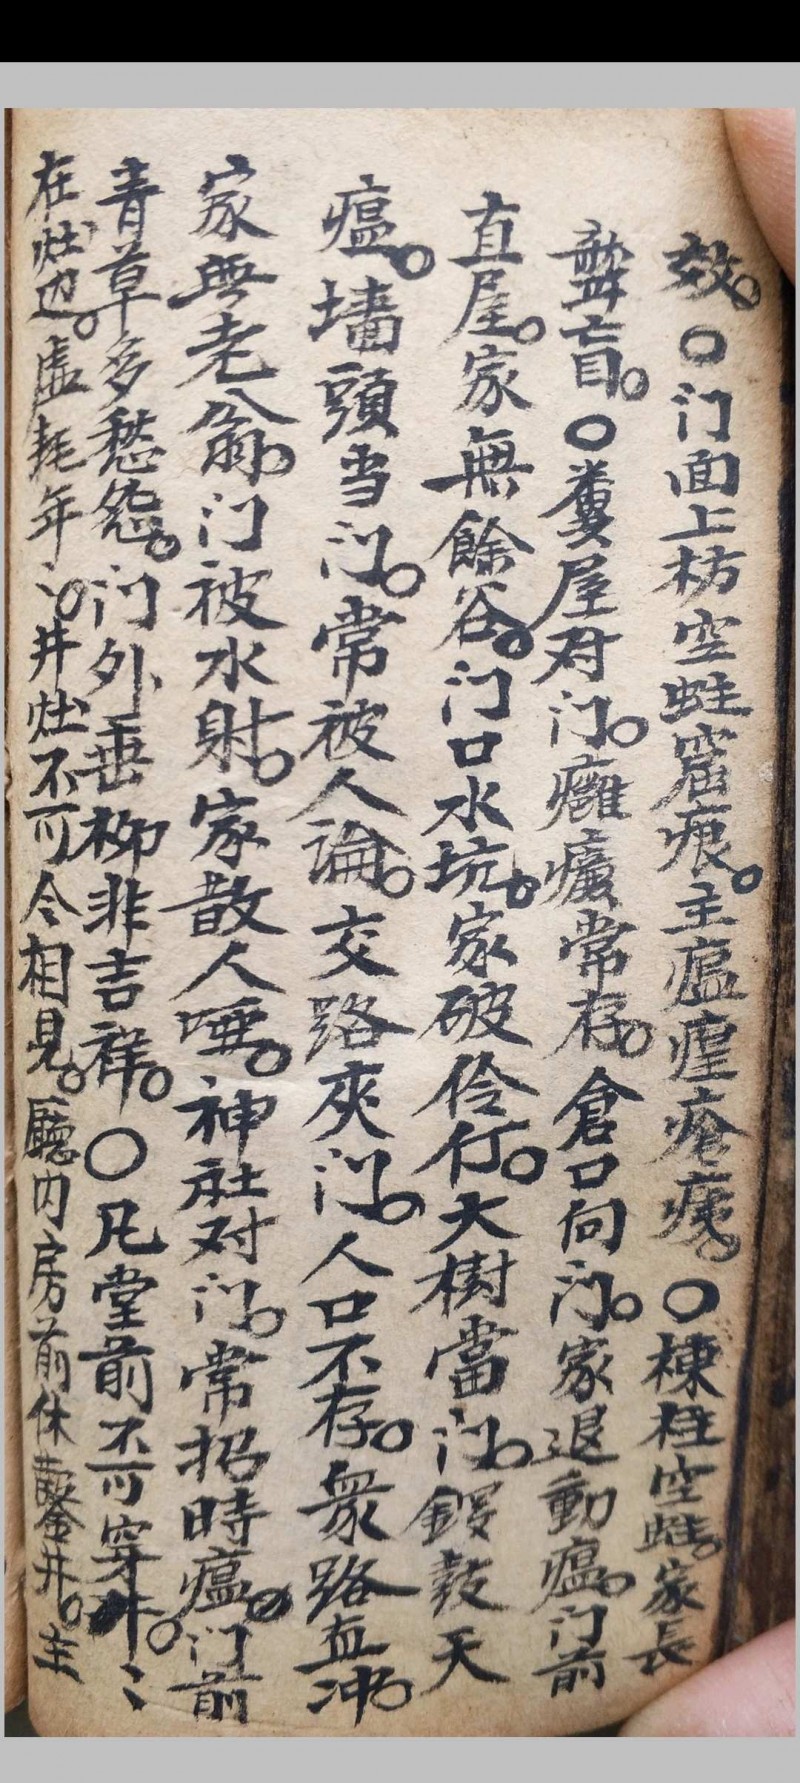 效。○门面上枋空蛀窟痕。主瘟瘽瘡痍。○棟柱空蛀。家長
聾盲。○糞屋对门。癰癀常存。倉口向门。家退動瘟。门前
直屋。家無餘谷。门口水坑。家破伶仃。大樹當门。鑼鼓天
瘟。墻頭当门。常被人論。交路夾门。人口不存。衆路直冲。
家无老翁。门被水射。家散人唖。神社对门。常招時瘟。门前
青草多愁怨。门外垂柳非吉祥。○凡堂前不可穿井〻
在灶边。虛耗年〻。井灶不可令相見。廳内房前休鑿井。主